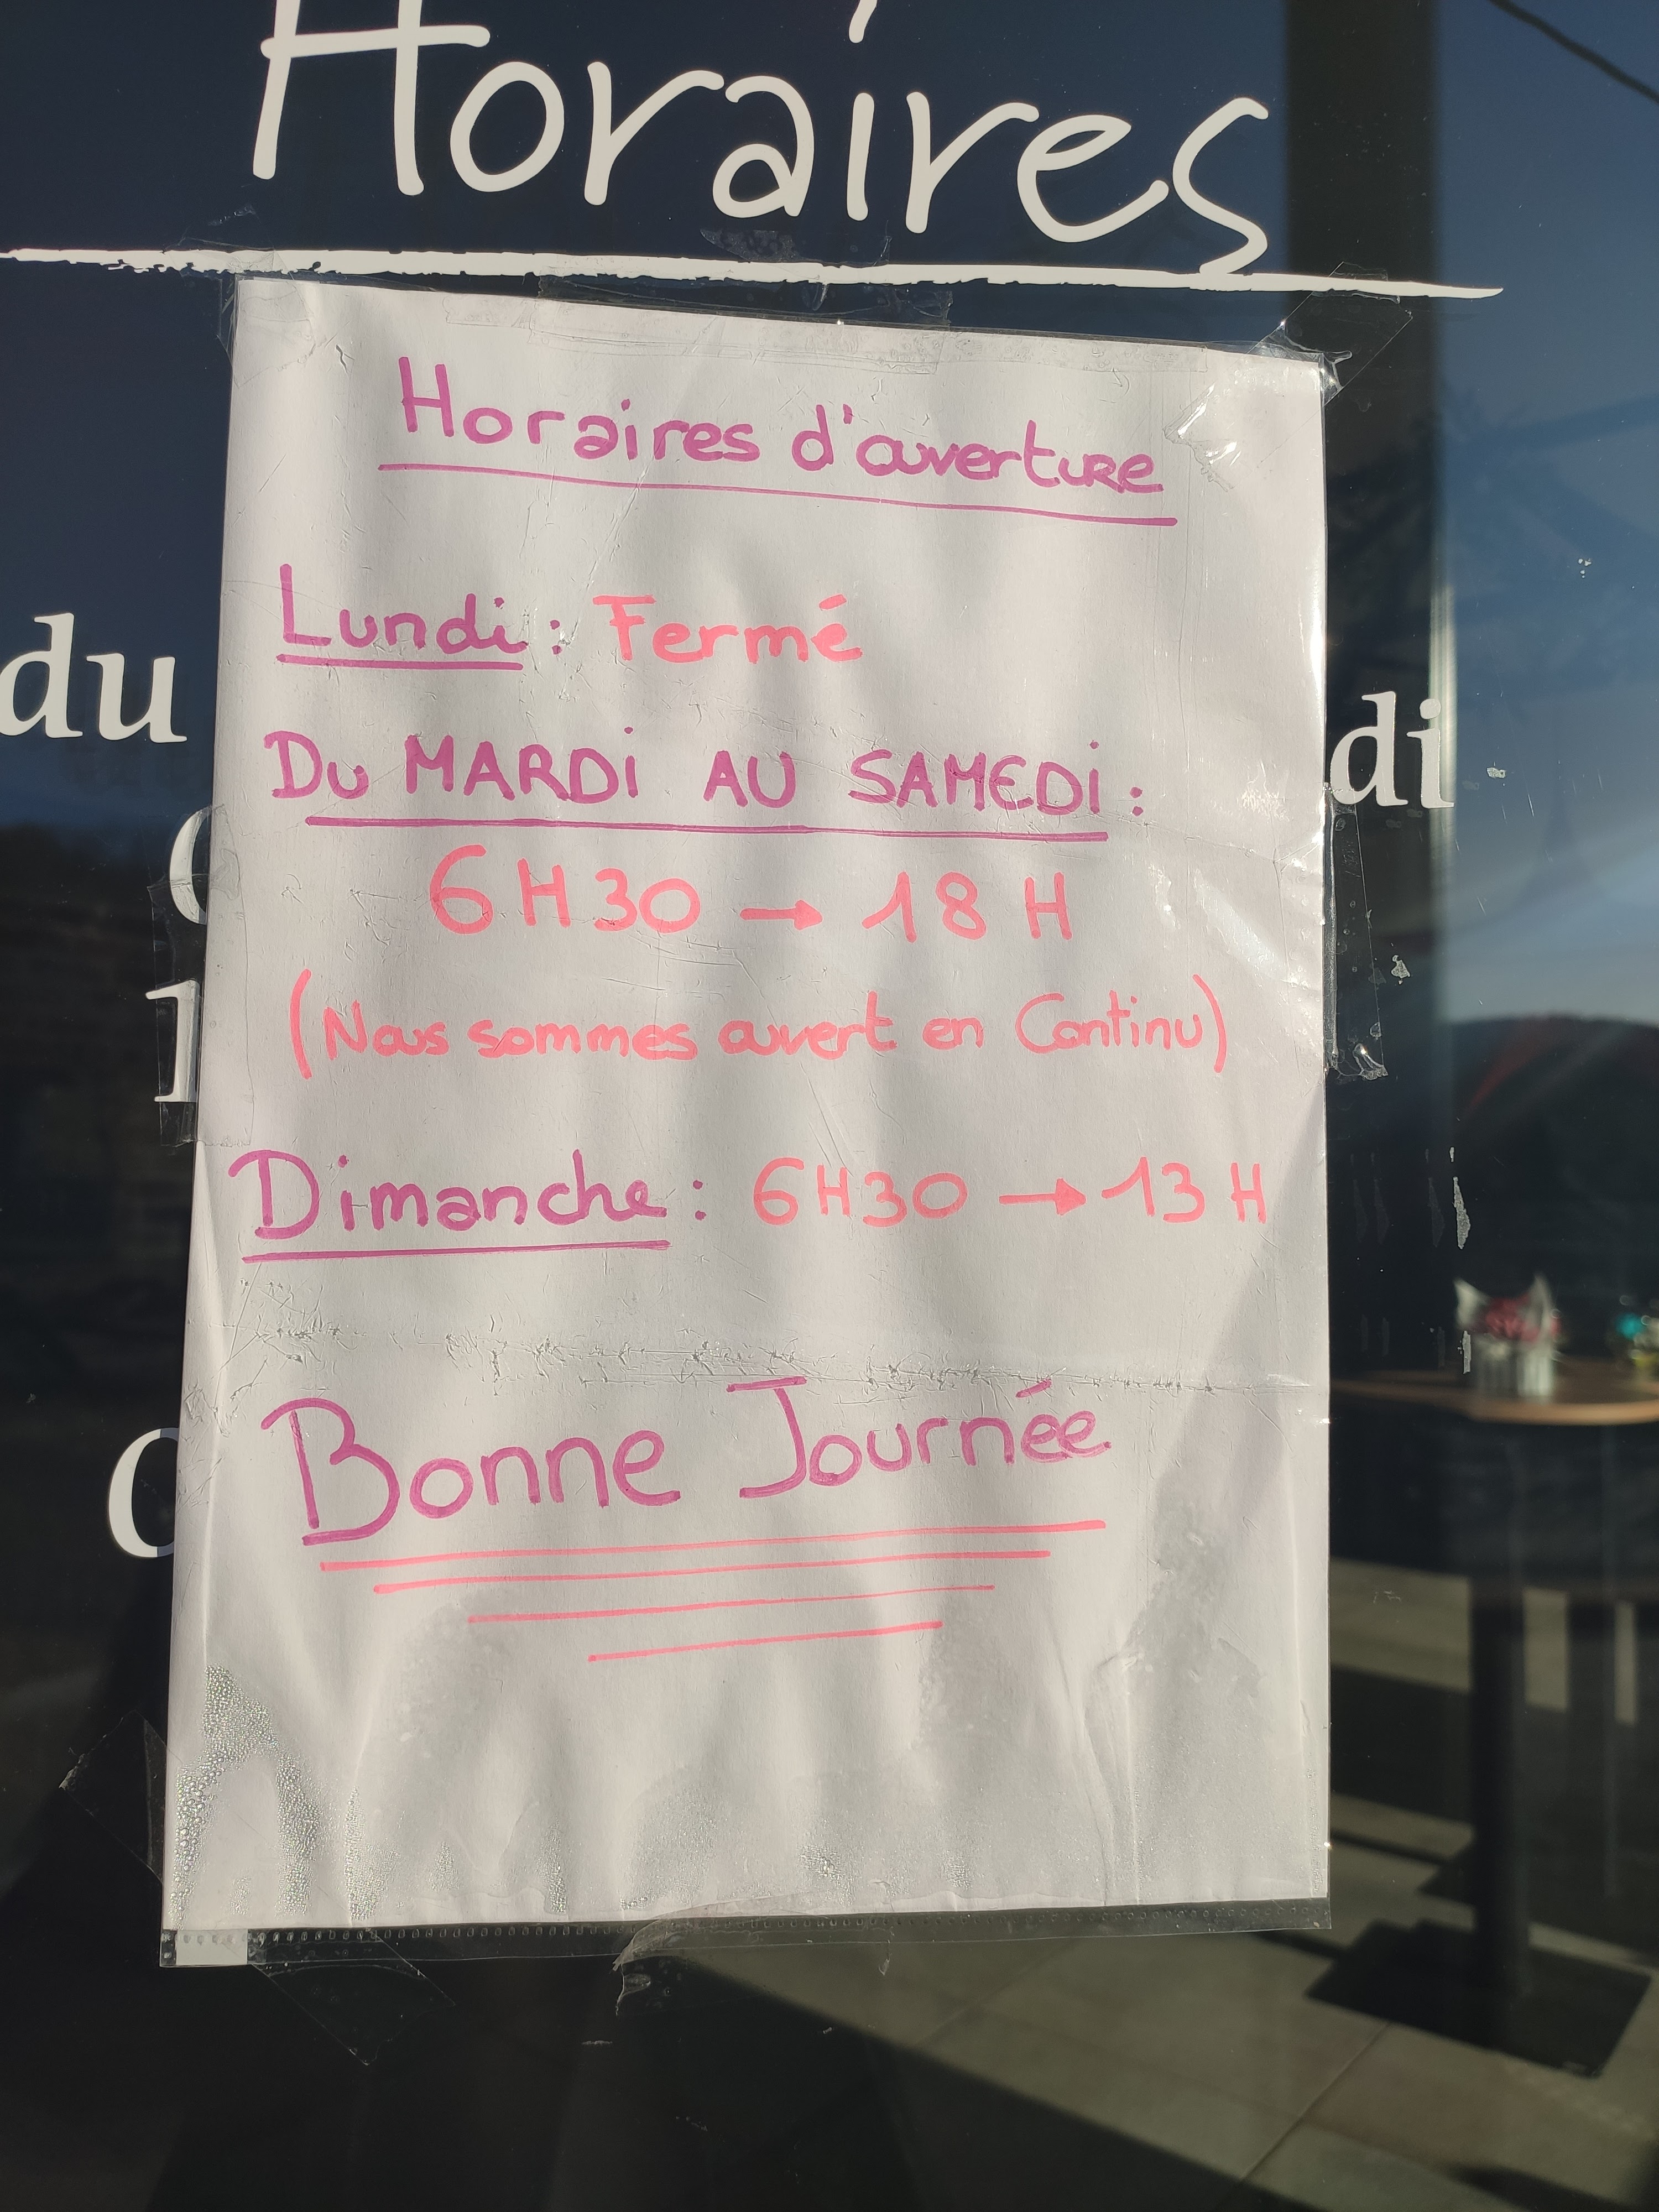 Horaires
Horaires d'ouverture
Lundi : Fermé
du
Du MARDI AU SAMEDI :
di
6H30 → 18 H
(Nous sommes ouvert en Continu)
Dimanche : 6H30 → 13 H
Bonne Journée